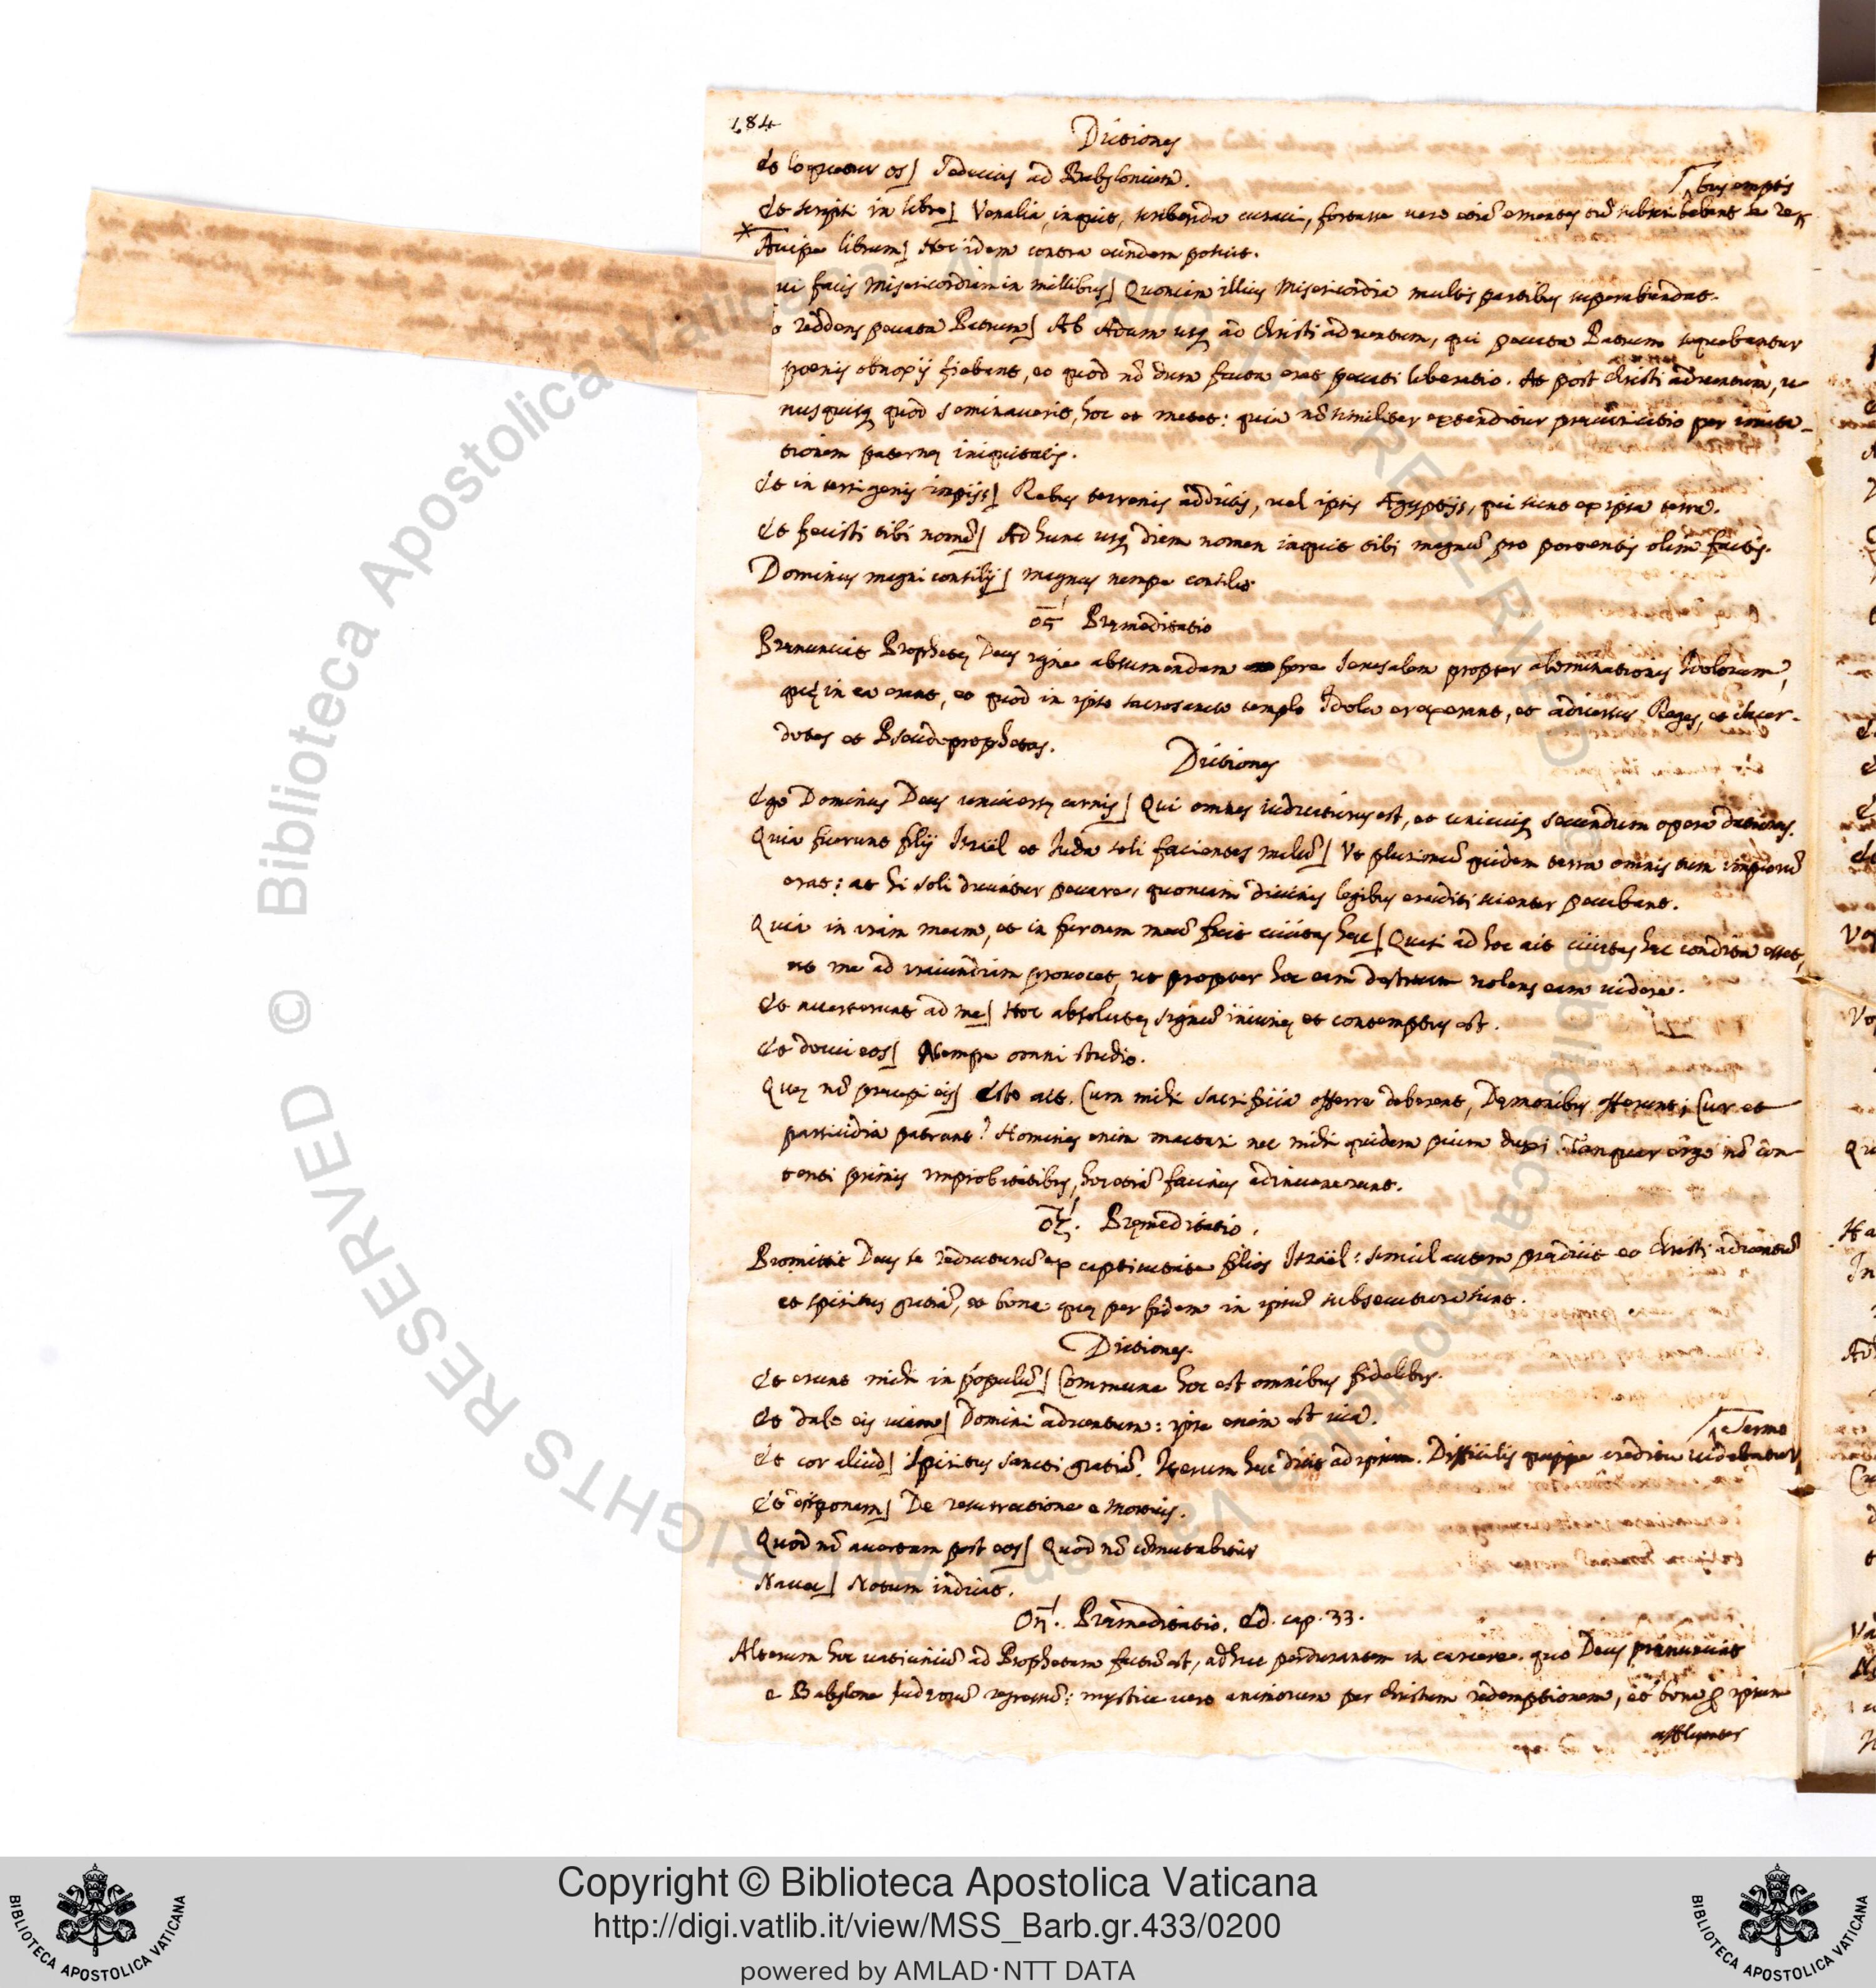 184
Dictiones
Et loquetur os] Sedecias ad Babylonium.
Et scripsi in libro] Venalia, inquit, scribenda curavi, fortasse vero etiã ementes cũ subscribebant se re-
bus emptis
Accipe librum] Hoc idem contra eundem potuit.
ui facis misericordiam in millibus] Quoniam illius Misericordia multis partibus superabundat.
reddens peccata Patrum] Ab Adam usq; ad Christi adventum, qui peccata Patrum sequebantur
poenis obnoxij fiebant, eo quod nõ dum facta erat peccati liberatio. At post Christi adventum, u-
nusquisq; quod seminaverit, hoc et metet: quia nõ similiter extenditur prevaricatio per imita-
tionem paternę iniquitatis.
Et in terrigenis impijs] Rebus terrenis additis, vel ipsis Ægyptijs, qui sunt ex ipsa terra.
Et fecisti tibi nomẽ] Ad hunc usq; diem nomen inquit tibi magnũ pro portentis olim factis.
Dominus magni consilij] magnus nempe consilio.
ος Pręmeditatio
Prænunciat Prophetę Deus igne absumendam fore Ierusalem propter abominationes Idolorum,
quę in ea erant, eo quod in ipso sacrosancto templo Idola erexerant, et adversus Reges, et Sacer-
dotes et Pseudoprophetas.
Dictiones
Ego Dominus Deus universę carnis] Qui omnes iudicaturus est, et unicuiq; secundum opera daturus.
Quia fuerunt filij Israël et Iuda soli facientes malũ] Ut plurimũ quidem terra omnis tum impiorũ
erat: at hi soli dicuntur peccare, quoniam divinis legibus eruditi scienter peccabant.
Quia in iram meam, et in furorem meũ fuit civitas hęc] Quasi ad hoc ait civitas hęc condita esset,
ut me ad iracundiam provocet, ut propter hoc eam destruam nolens eam videre.
Et averterunt ad me] Hoc absolutę signũ iniurię et contemptus est.
Et docui eos] Nempe omni studio.
Quę nõ precepi eis] Esto ait. Cum mihi sacrificia offerre deberent, Dęmonibus offerunt; Cur et
parricidia patrant? Homines enim mactari nec mihi quidem pium duxi. Tanquam ergo nõ con-
tenti primis improbitatibus, hoc etiã facinus adinvenerunt.
οζ. Pręmeditatio.
Promittit Deus se reducturũ ex captivitate filios Israël: simul autem prædicit eo Christi adventũ
et spiritus gratiã, et bona quę per fidem in ipsũ subsecutura sunt.
Dictiones.
Et erunt mihi in populũ] Commune hoc est omnibus fidelibus.
Et dabo eis viam] Domini adventum: ipse enim est via.
Et cor aliud] Spiritus Sancti gratiã. Iterum hęc dicit ad ipsum. Difficilis quippe creditu videbatur
Sermo
Et De resurrectione a mortuis.
Quod nõ avertam post eos] Quod nõ cõmutabitur
Notum indicat.
οη. Pręmeditatio. Ed. cap. 33.
Alterum hoc vaticiniũ ad Prophetam factũ est, adhuc perdurantem in carcere. quo Deus prænunciat
e Babylone Iudæorũ regressũ: mystice vero animorum per Christum redemptionem, et bona p ipsum
affluentes
Copyright © Biblioteca Apostolica Vaticana
http://digi.vatlib.it/view/MSS_Barb.gr.433/0200
powered by AMLAD·NTT DATA
BIBLIOTECA APOSTOLICA VATICANA
BIBLIOTECA APOSTOLICA VATICANA
© Biblioteca Apostolica Vaticana ALL RIGHTS RESERVED
© Biblioteca Apostolica Vaticana ALL RIGHTS RESERVED